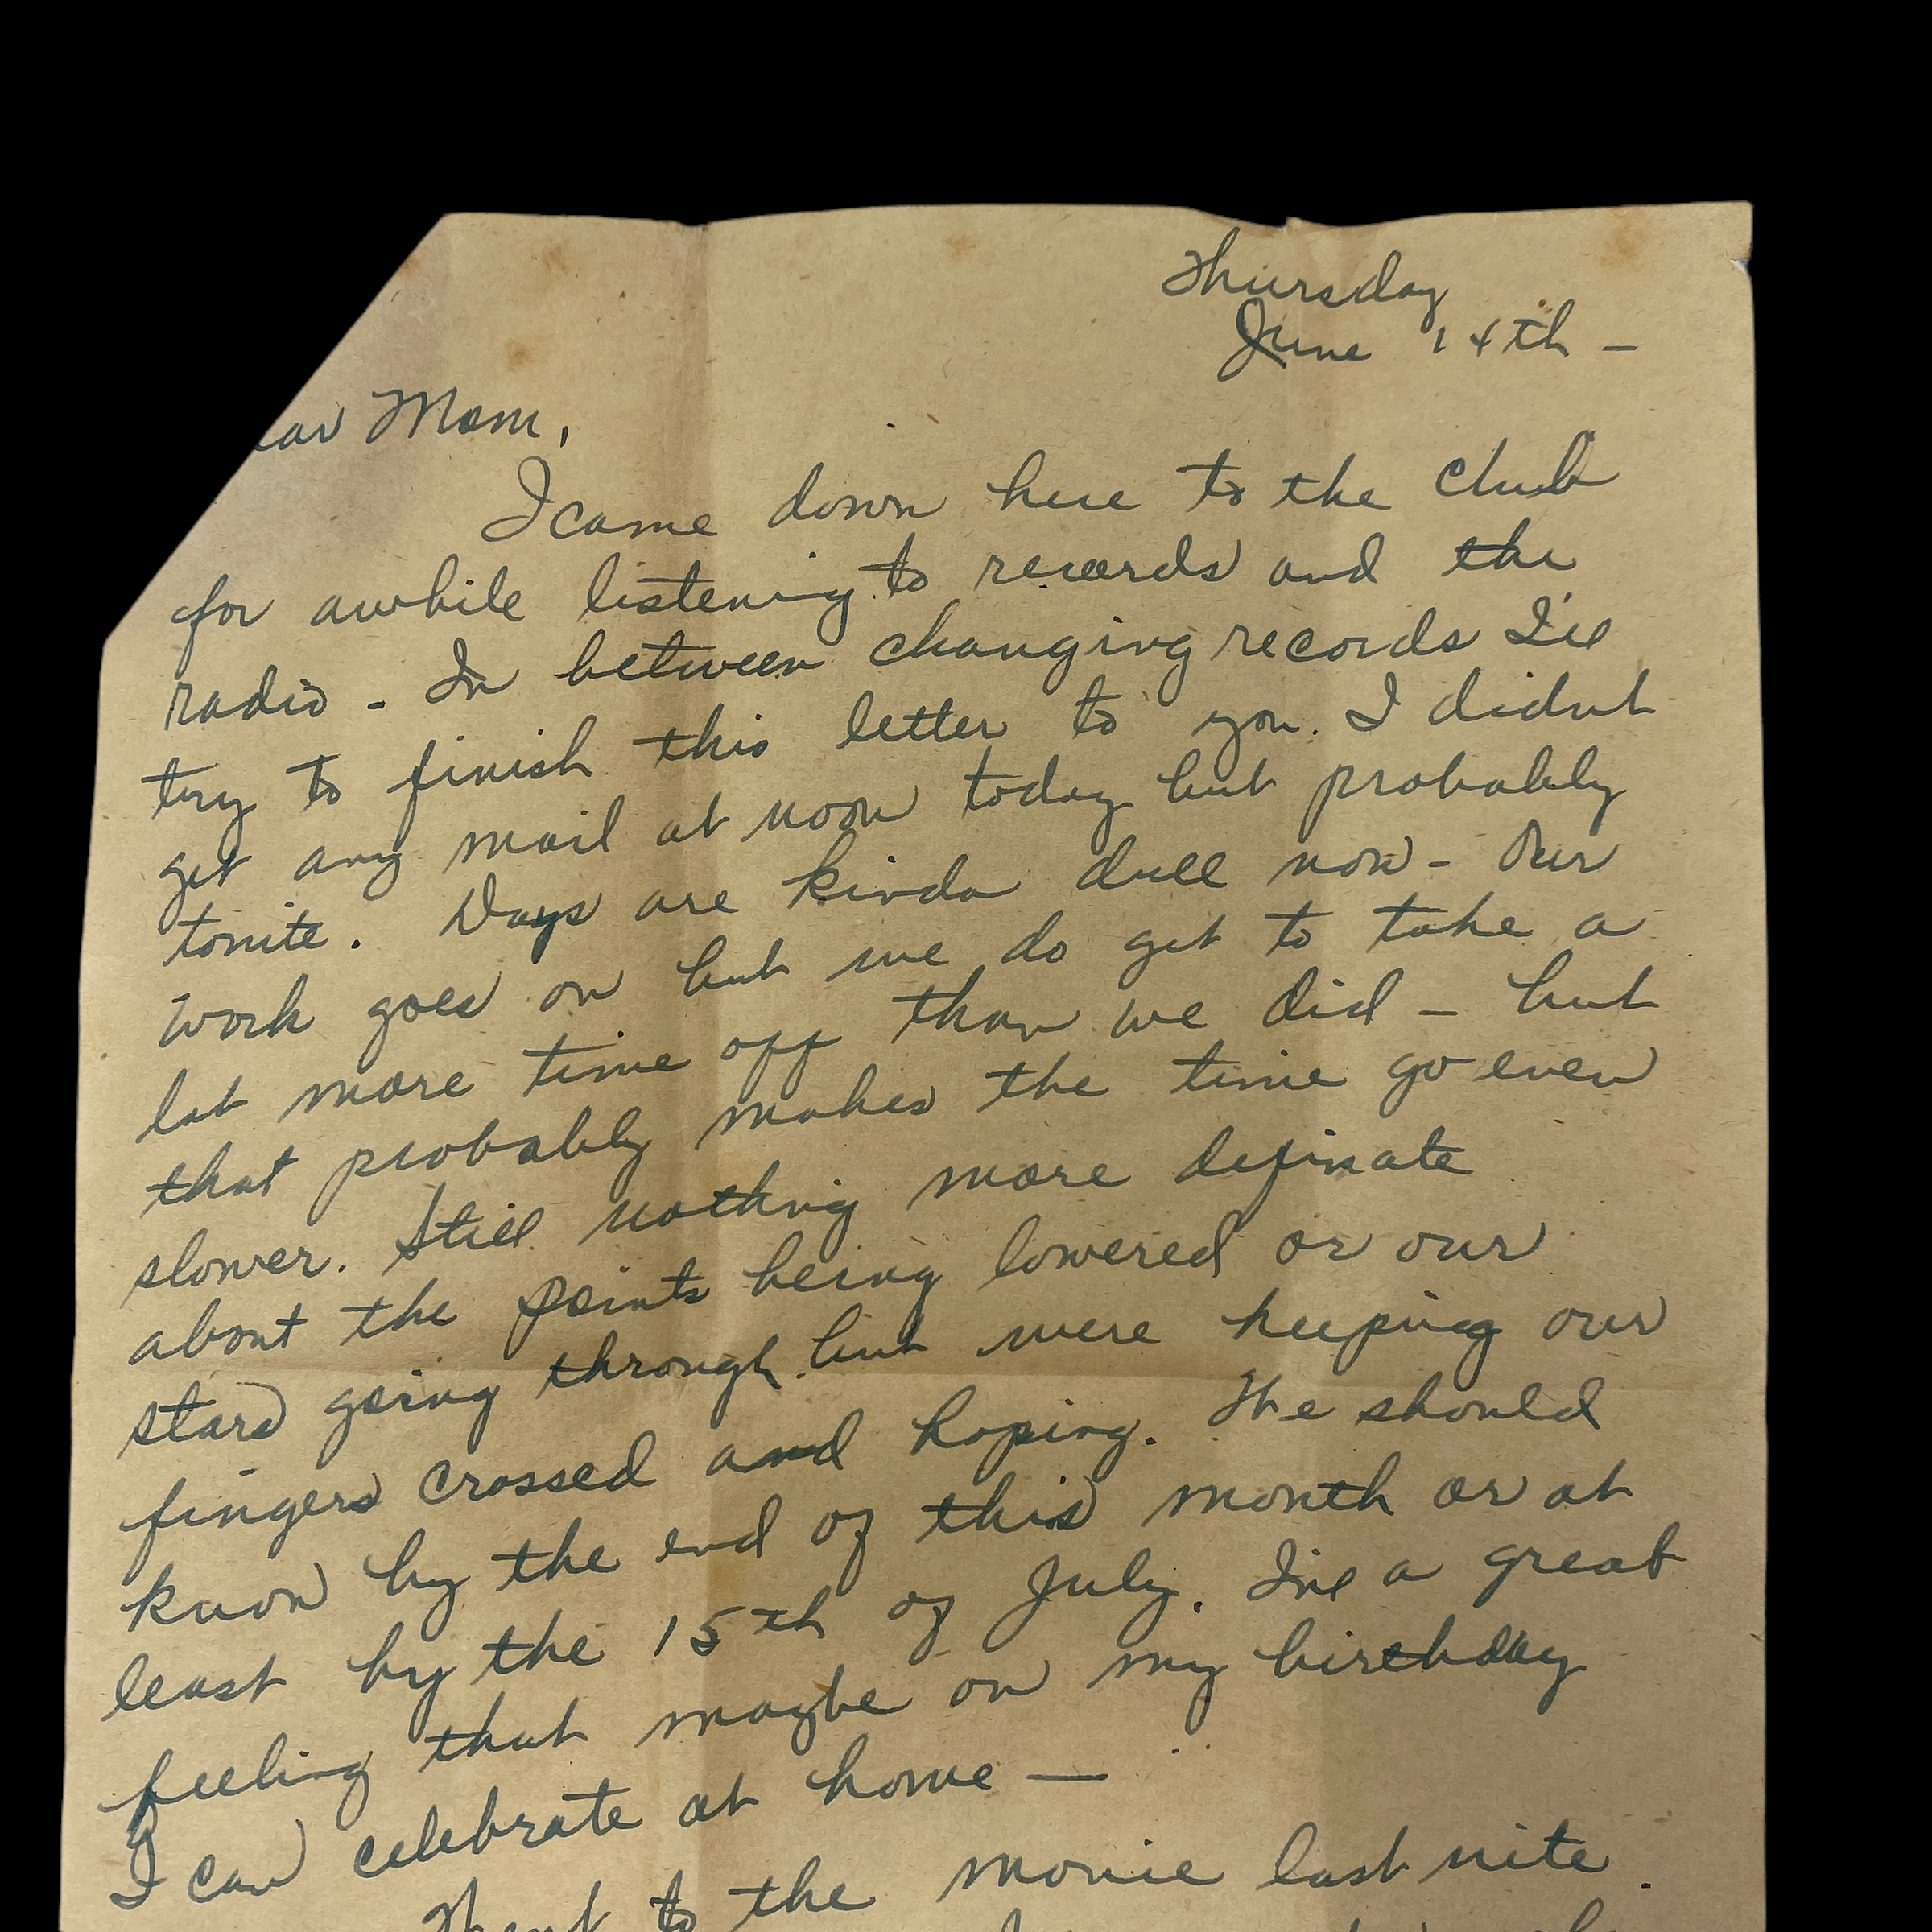 Thursday
June 14th –
ear Mom,
I came down here to the club
for awhile listening to records and the
radio - In between changing records I'll
try to finish this letter to you. I didnt
get any mail at noon today but probably
tonite. Days are kinda dull now - Our
work goes on but we do get to take a
lot more time off than we did – but
that probably makes the time go even
slower. Still nothing more definate
about the points being lowered or our
stars going through but were keeping our
fingers crossed and hoping. We should
know by the end of this month or at
least by the 15th of July. I've a great
feeling that maybe on my birthday
I can celebrate at home —
Went to the movie last nite.